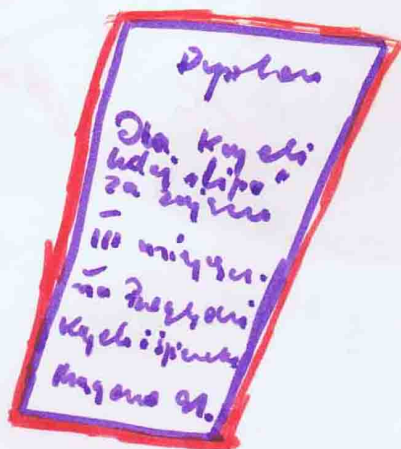 Dyplom
Dla Kapeli
"lipa"
za zajęcie
III miejsca.
na Przeglądzie
Kapel i Śpiewaków
91.